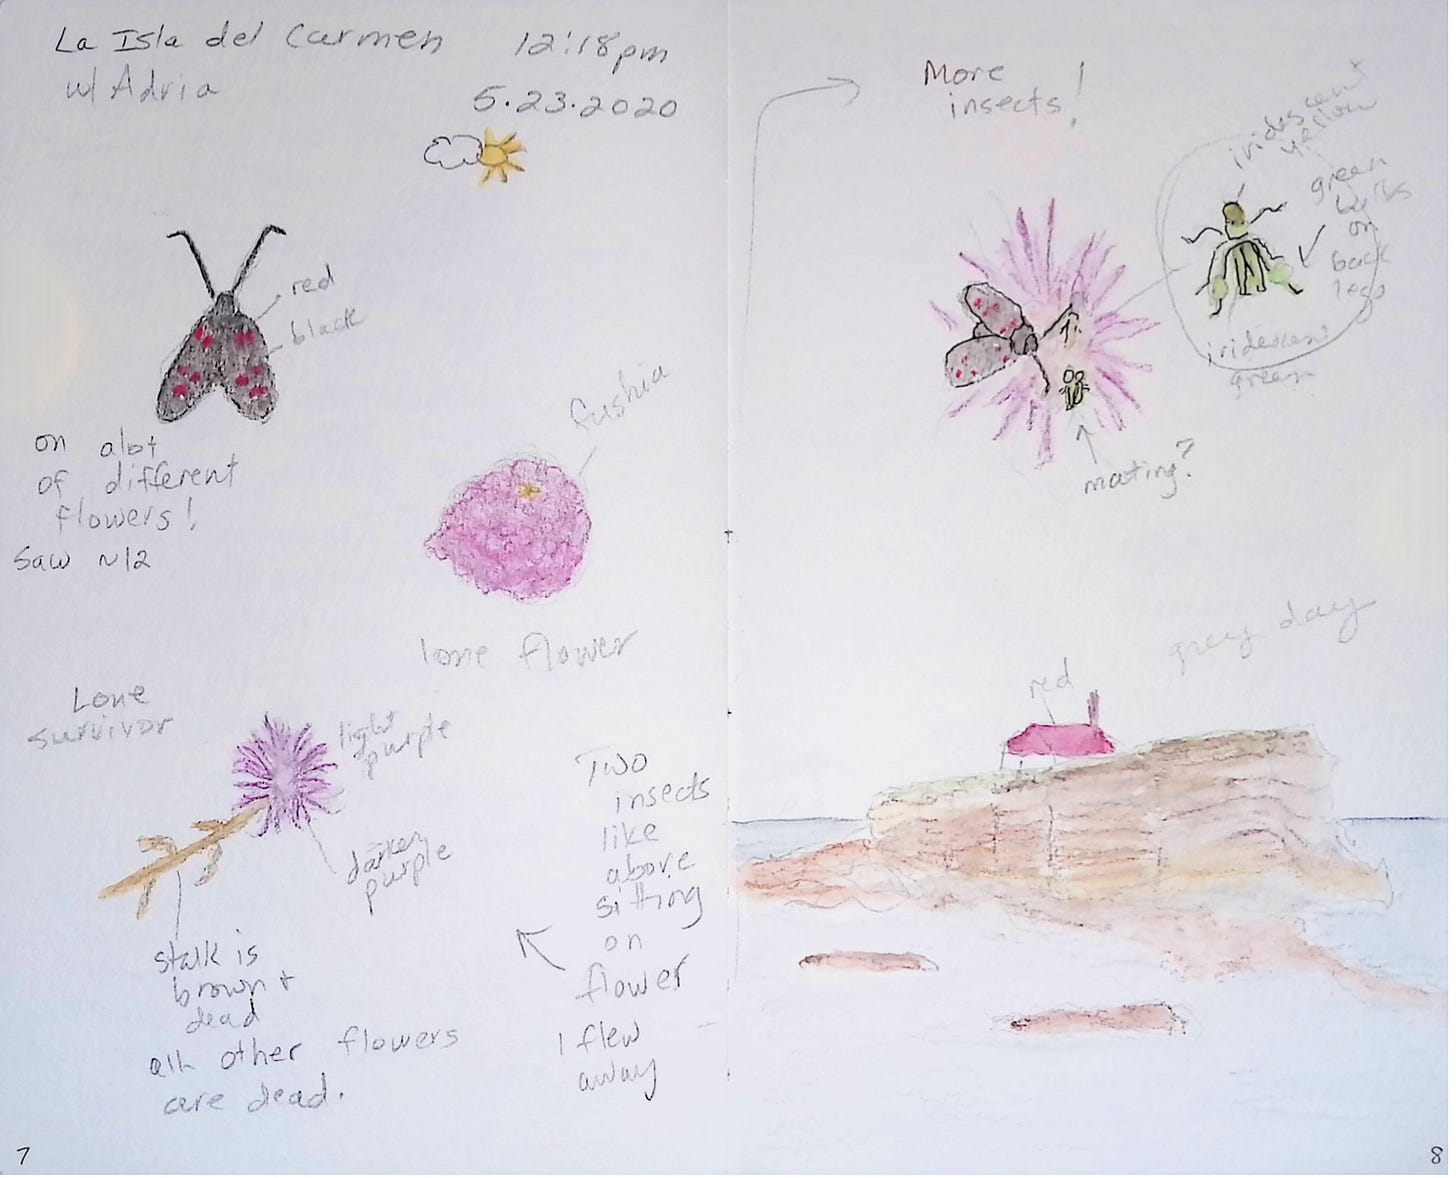 La Isla del Carmen
w/ Adria
12:18pm
5.23.2020
red
black
on alot
of different
flowers!
Saw ~12
fushia
lone flower
Lone
survivor
light
purple
darker
purple
stalk is
brown +
dead
all other flowers
are dead.
Two
insects
like
above
sitting
on
flower
1 flew
away
7
More
insects!
iridescent
yellow
green
bulbs
on
back
legs
iridescent
green
mating?
grey day
red
8